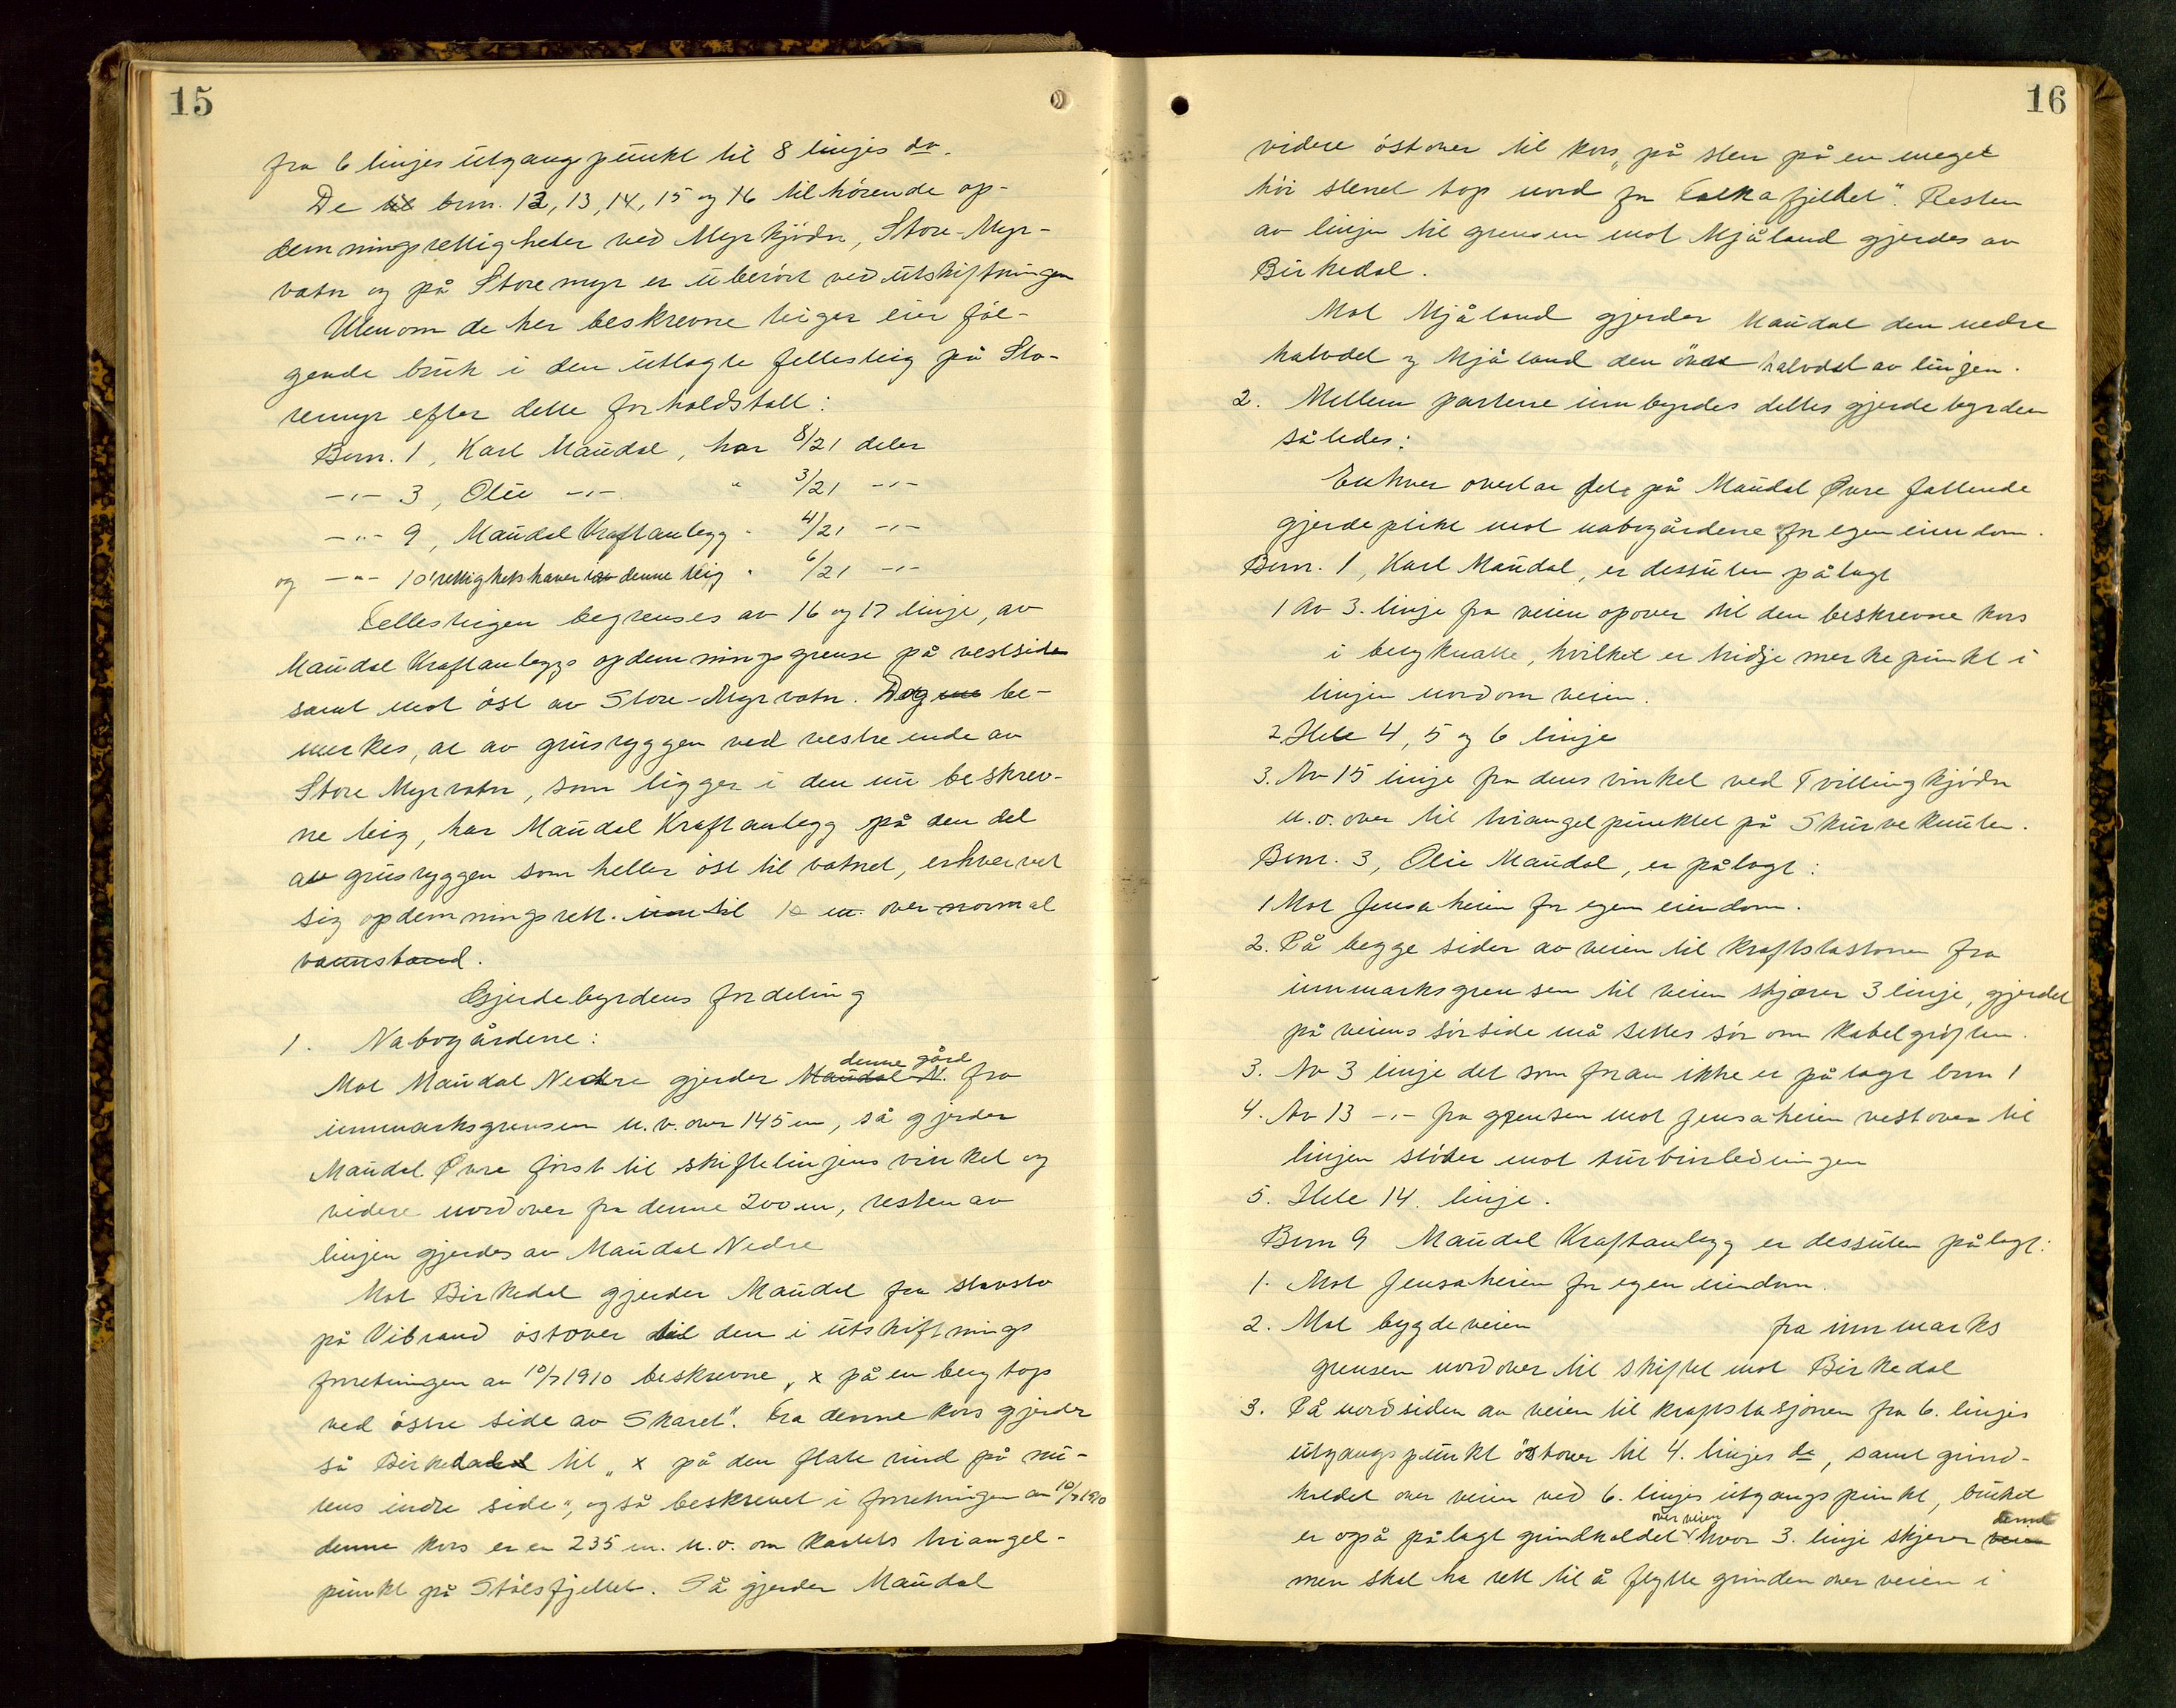 15
fra 6 linjes utgangspunkt til 8 linjes do.
De til brnr. 12, 13, 14, 15 og 16 tilhörende op-
demningsrettigheter ved Myrkjödn, Store-Myr-
vatn og på Storemyr er uberört ved utskiftningen
Utenom de her beskrevne teiger eier föl-
gende bruk i den utlagte fellesteig på Sto-
remyr efter dette forholdstall:
Brnr. 1, Karl Maudal, har 8/21 deler
-"- 3, Olai -"- " 3/21 -"-
-"- 9, Maudal Kraftanlegg - 4/21 -"-
og -"- 10 rettighetshaver i denne teig " 6/21 -"-
Fellesteigen begrenses av 16 og 17 linje, av
Maudal Kraftanleggs opdemningsgrense på vestsiden
samt mot öst av Store-Myrvatn. Dog be-
merkes, at av grusryggen ved vestre ende av
Store Myrvatn, som ligger i den nu beskrev-
ne teig, har Maudal Kraftanlegg på den del
av grusryggen som heller öst til vatnet, erhvervet
sig opdemningsrett. inntil 10 m. over normal
vannstand.
Gjerdebyrdens fordeling
1. Nabogårdene:
denne gård
Mot Maudal Nedre gjerder Maudal N. fra
innmarksgrensen n.v. over 145 m, så gjerder
Maudal Øvre först til skiftelinjens vinkel og
videre nordover fra denne 200 m, resten av
linjen gjerdes av Maudal Nedre
Mot Birkedal gjerder Maudal fra
på Vibrand östover til den i utskiftnings
forretningen av 10/7 1910 beskrevne „x på en berg top
ved östre side av Skaret". Fra denne kors gjerder
så Birkedal til „x på den flate rind på nu-
tens indre side", også beskrevet i forretningen av 10/7 1910
denne kors er en 235 m. n.o. om kartets triangel-
punkt på Stölsfjellet. Så gjerder Maudal
16
videre östover til kors „på sten på en meget
höi stenet top nord for Falkafjeldet". Resten
av linjen til grensen mot Mjåland gjerdes av
Birkedal.
Mot Mjåland gjerder Maudal den nedre
halvdel og Mjåland den övre halvdel av linjen.
2. Mellem partene innbyrdes deltes gjerdebyrden
således:
Enhver overtar dets på Maudal Øvre fallende
gjerdeplikt mot nabogårdene for egen eiendom.
Brnr. 1, Karl Maudal, er dessuten pålagt
1 Av 3. linje fra veien opover til den beskrevne kors
i bergknatte, hvilket er tridje merkepunkt i
linjen nordom veien.
2. Hele 4, 5 og 6 linje
3. Av 15 linje fra dens vinkel ved Tvillingkjödn
n.o. over til triangelpunktet på Skurvenuten.
Brnr. 3, Olai Maudal, er pålagt:
1 Mot Jensaheien for egen eiendom.
2. På begge sider av veien til kraftstastonen fra
innmarksgrensen til veien skjærer 3 linje, gjerdet
på veiens sörside må settes sör om kabelgröften.
3. Av 3 linje det som foran ikke er pålagt brnr 1
4. Av 13 -"- fra grensen mot Jensaheien vestover til
linjen stöter mot turbinledningen
5. Hele 14. linje.
Brnr 9 Maudal Kraftanlegg er dessuten pålagt:
1. Mot Jensaheien for egen eiendom.
2. Mot bygdeveien fra innmarks
grensen nordover til skiftet mot Birkedal
3. På nordsiden av veien til kraftstasjonen fra 6. linjes
utgangspunkt östover til 4. linjes do, samt grind-
holdet over veien ved 6. linjes utgangspunkt, bruket
over veien denne
er også pålagt grindholdet hvor 3. linje skjærer veien
men skal ha rett til å flytte grinden over veien i